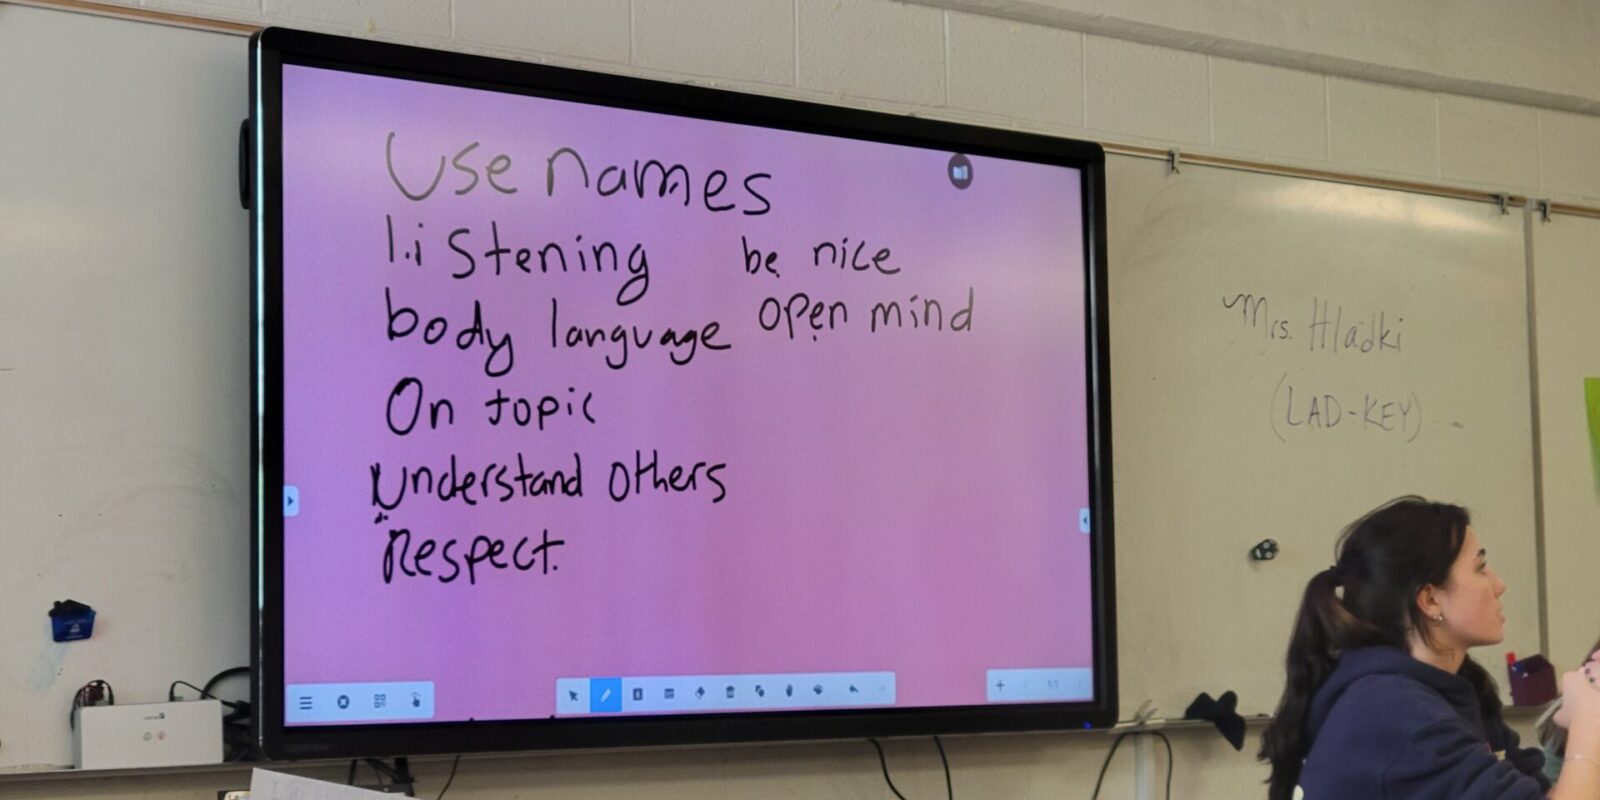 Use names
listening
be nice
body language
open mind
On topic
Understand others
Respect.
Mrs. Hladki
(LAD-KEY)